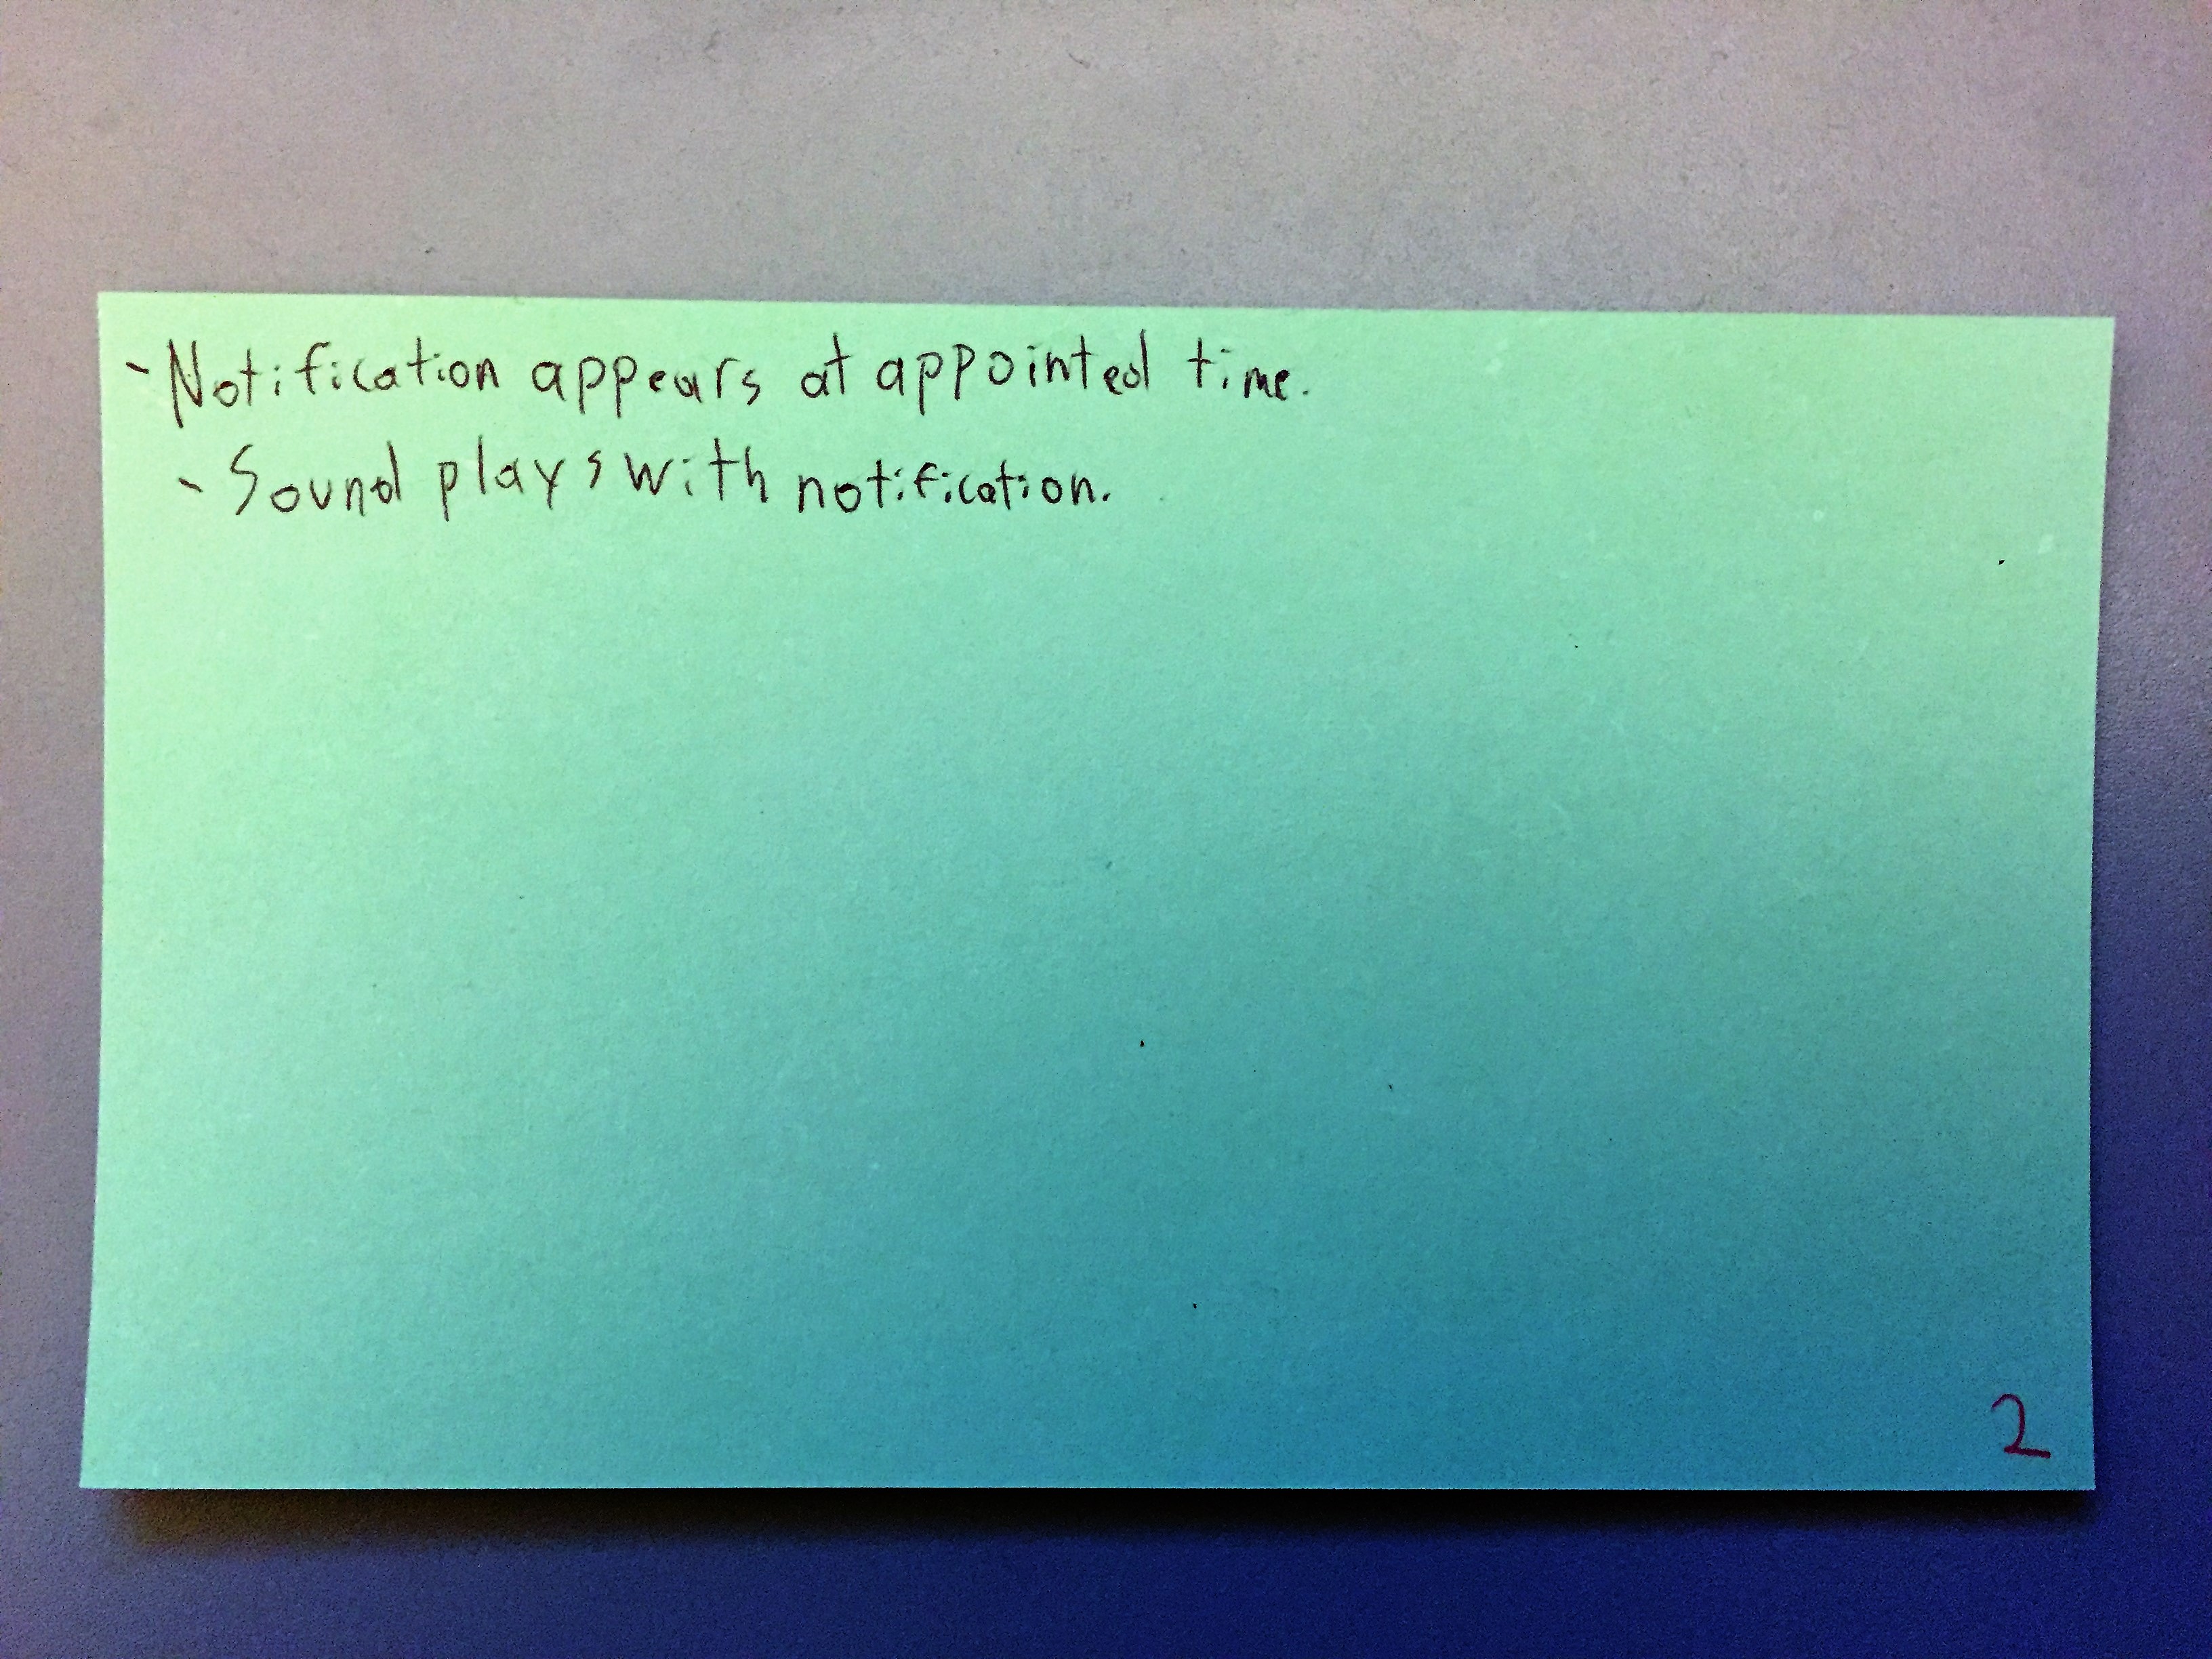 - Notification appears at appointed time.
- Sound plays with notification.
2